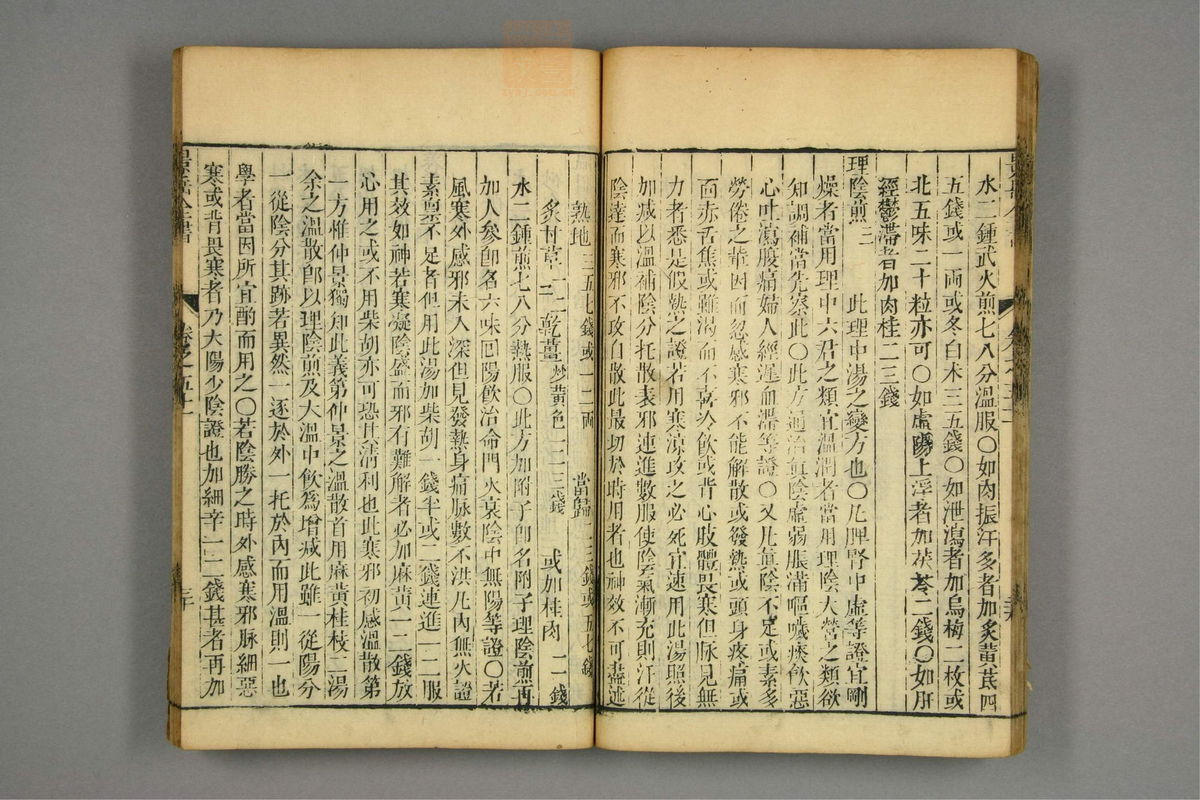 水二鍾武火煎七八分溫服〇如肉振汗多者加炙黃芪四
五錢或一兩或冬白术三五錢〇如泄瀉者加烏梅二枚或
北五味二十粒亦可〇如虛陽上浮者加茯苓二錢〇如肝
經鬱滯者加肉桂二三錢
理陰煎三 此理中湯之變方也〇凡脾腎中虛等證宜剛
燥者當用理中六君之類宜溫潤者當用理陰大營之類欲
知調補當先察此〇此方通治真陰虛弱脹滿嘔噦痰飲惡
心吐瀉腹痛婦人經遲血滯等證〇又凡真陰不足或素多
勞倦之輩因而忽感寒邪不能解散或發熱或頭身疼痛或
面赤舌焦或雖渴而不喜冷飲或背心肢體畏寒但脉見無
力者悉是假熱之證若用寒涼攻之必死宜速用此湯照後
加减以溫補陰分托散表邪連進數服使陰氣漸充則汗從
陰達而寒邪不攻自散此最切於時用者也神效不可盡述
熟地三五七錢或一二兩 當歸二三錢或五七錢
炙甘草一二錢 乾薑炒黃色一二三錢 或加桂肉一二錢
水二鍾煎七八分熱服〇此方加附子卽名附子理陰煎再
加人參卽名六味回陽飲治命門火衰陰中無陽等證〇若
風寒外感邪未入深但見發熱身痛脉數不洪凡內無火證
素禀不足者但用此湯加柴胡一錢半或二錢連進一二服
其效如神若寒凝陰盛而邪有難解者必加麻黃一二錢放
心用之或不用柴胡亦可恐其清利也此寒邪初感溫散第
一方惟仲景獨知此義第仲景之溫散首用麻黃桂枝二湯
余之溫散卽以理陰煎及大溫中飲爲增减此雖一從陽分
一從陰分其跡若異然一逐於外一托於內而用溫則一也
學者當因所宜酌而用之〇若陰勝之時外感寒邪脉細惡
寒或背畏寒者乃太陽少陰證也加細辛一二錢甚者再加
卷之五十一